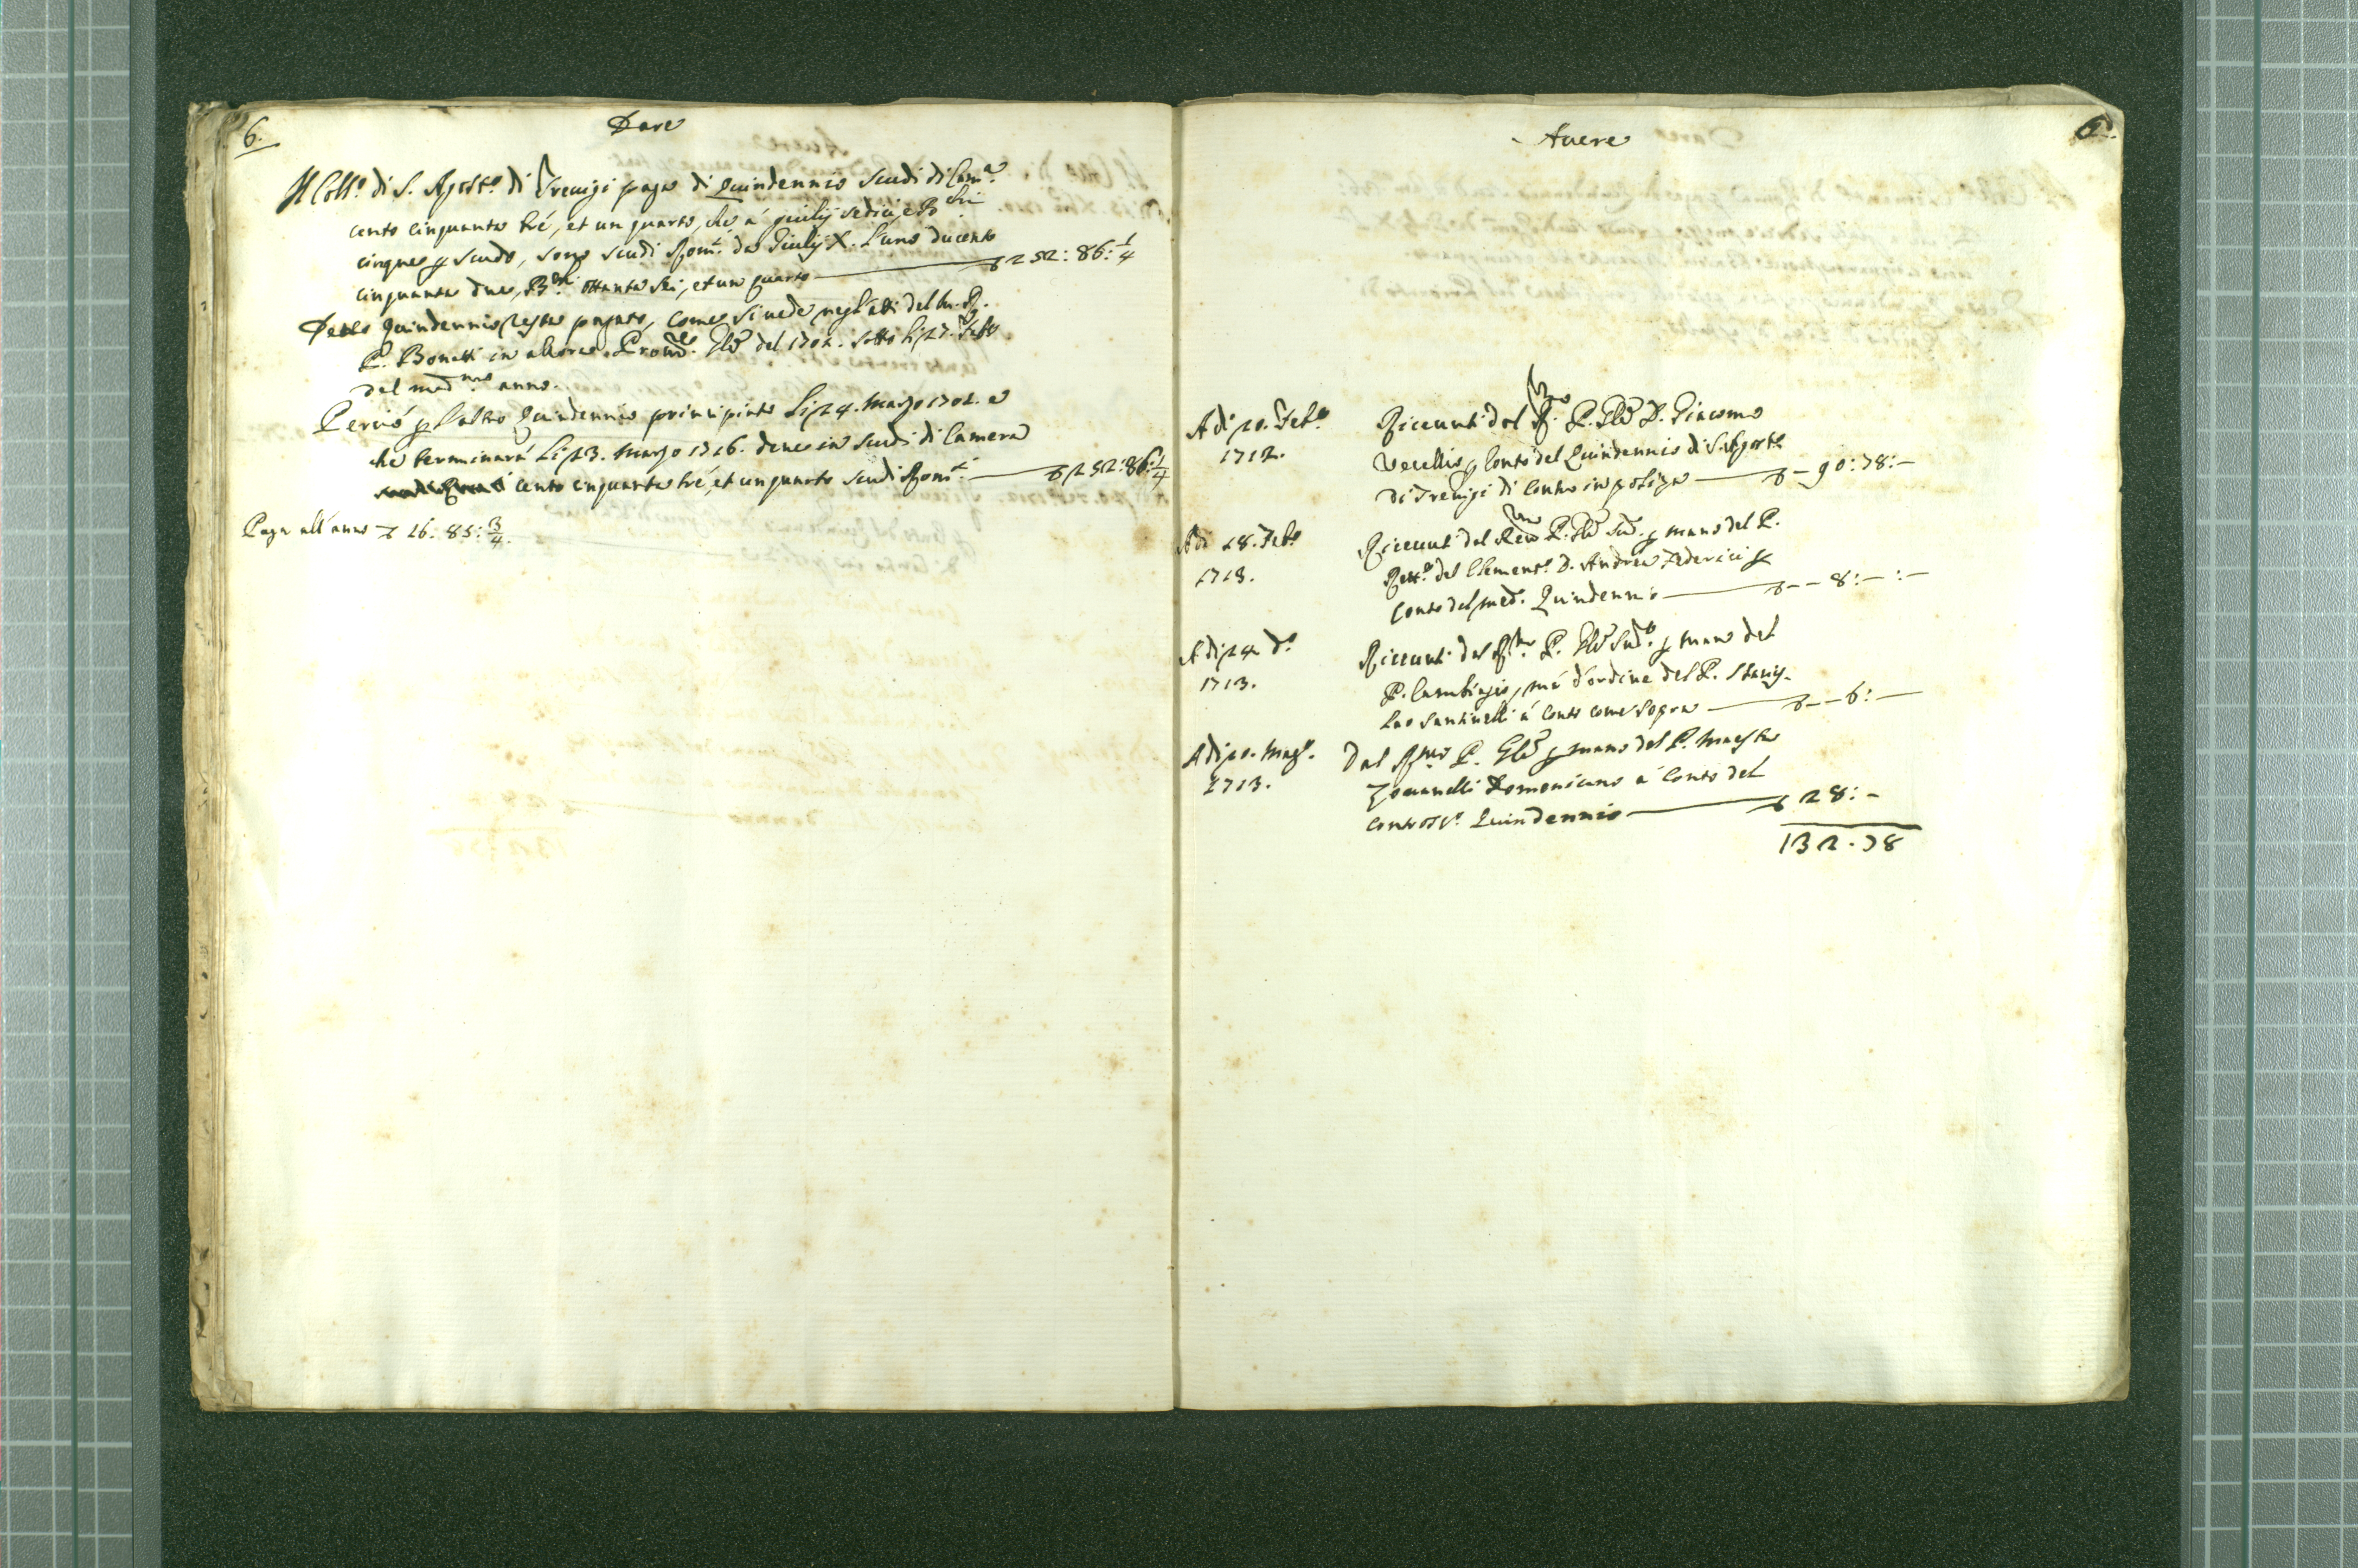 6.
Dare
Il Coll.o di S. Agost.o di Treuigi paga di Quindennio scudi di Cam.a
cento cinquanta tré, et un quarto, che á giulij sedici, e B.chi
cinque p scudo, sono scudi Rom.i da Giulij X. l'uno ducento
cinquanta due, B.chi ottanta sei, et un quarto 252: 86: 1/4
Detto Quindennio resta pagato, come si uede negl'atti del M. R.
P. Bonetti in allora Proccu.re Gle del 1702. sotto li 27. Feb.o
del med.mo anno.
Perció p l'altro Quindennio principiato li 24. Marzo 1701. e
che terminará li 23. Marzo 1716. deue in scudi di Camera
cento cinquanta tré, et un quarto scudi Rom.i 252: 86 1/4
Paga all'anno 16: 85: 3/4
Auere
6.
A di 20. Feb.o
1712.
Riceuuti dal R.mo P. Gle D. Giacomo
Vecellio p conto del Quindennio di S. Agost.o
di Treuigi di contro in poliza 90: 78: –
A di 28. Feb.o
1713.
Riceuuti dal Re.mo P. Gle Sud.o p mano del P.
Rett.e del Clement.o D. Andrea Federici p
conto del med.o Quindennio 8: – : –
A di 24 d.o
1713.
Riceuuti dal R.mo P. Gle Sud.o p mano del
P. Cambiagio, má d'ordine del P. Stanis-
lao Santinelli á conto come sopra 6: –
A di 20. Mag.o
1713.
Dal R.mo P. Gle p mano del P. Maestro
Zouanelli Domenicano á conto del
Quindennio 28: –
132. 78